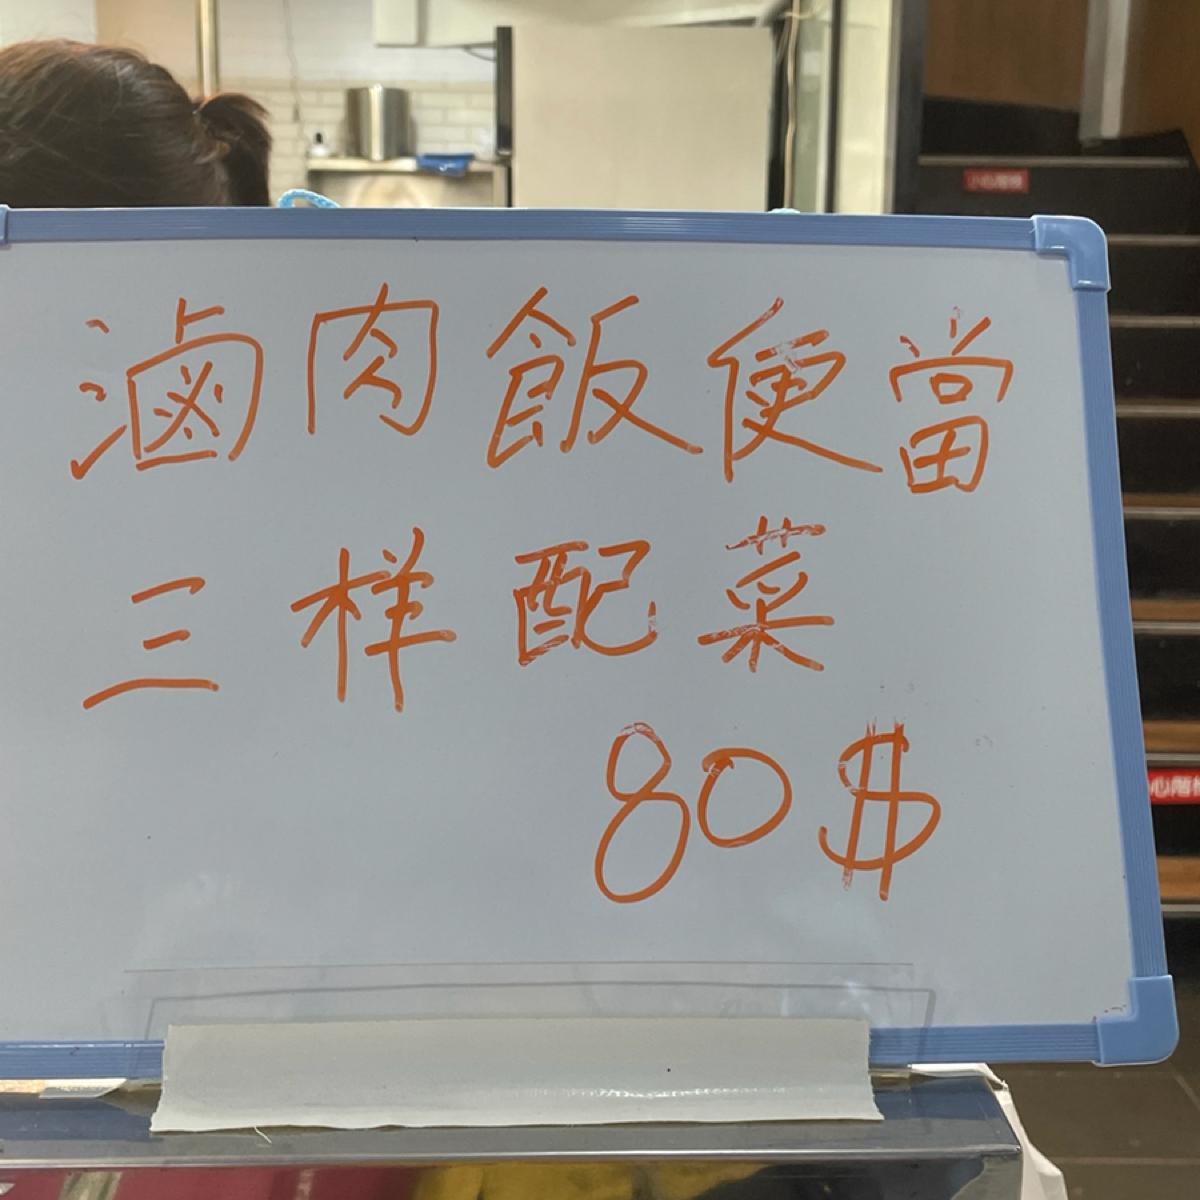 滷肉飯便當
三样配菜
80$
小心階梯
心階梯